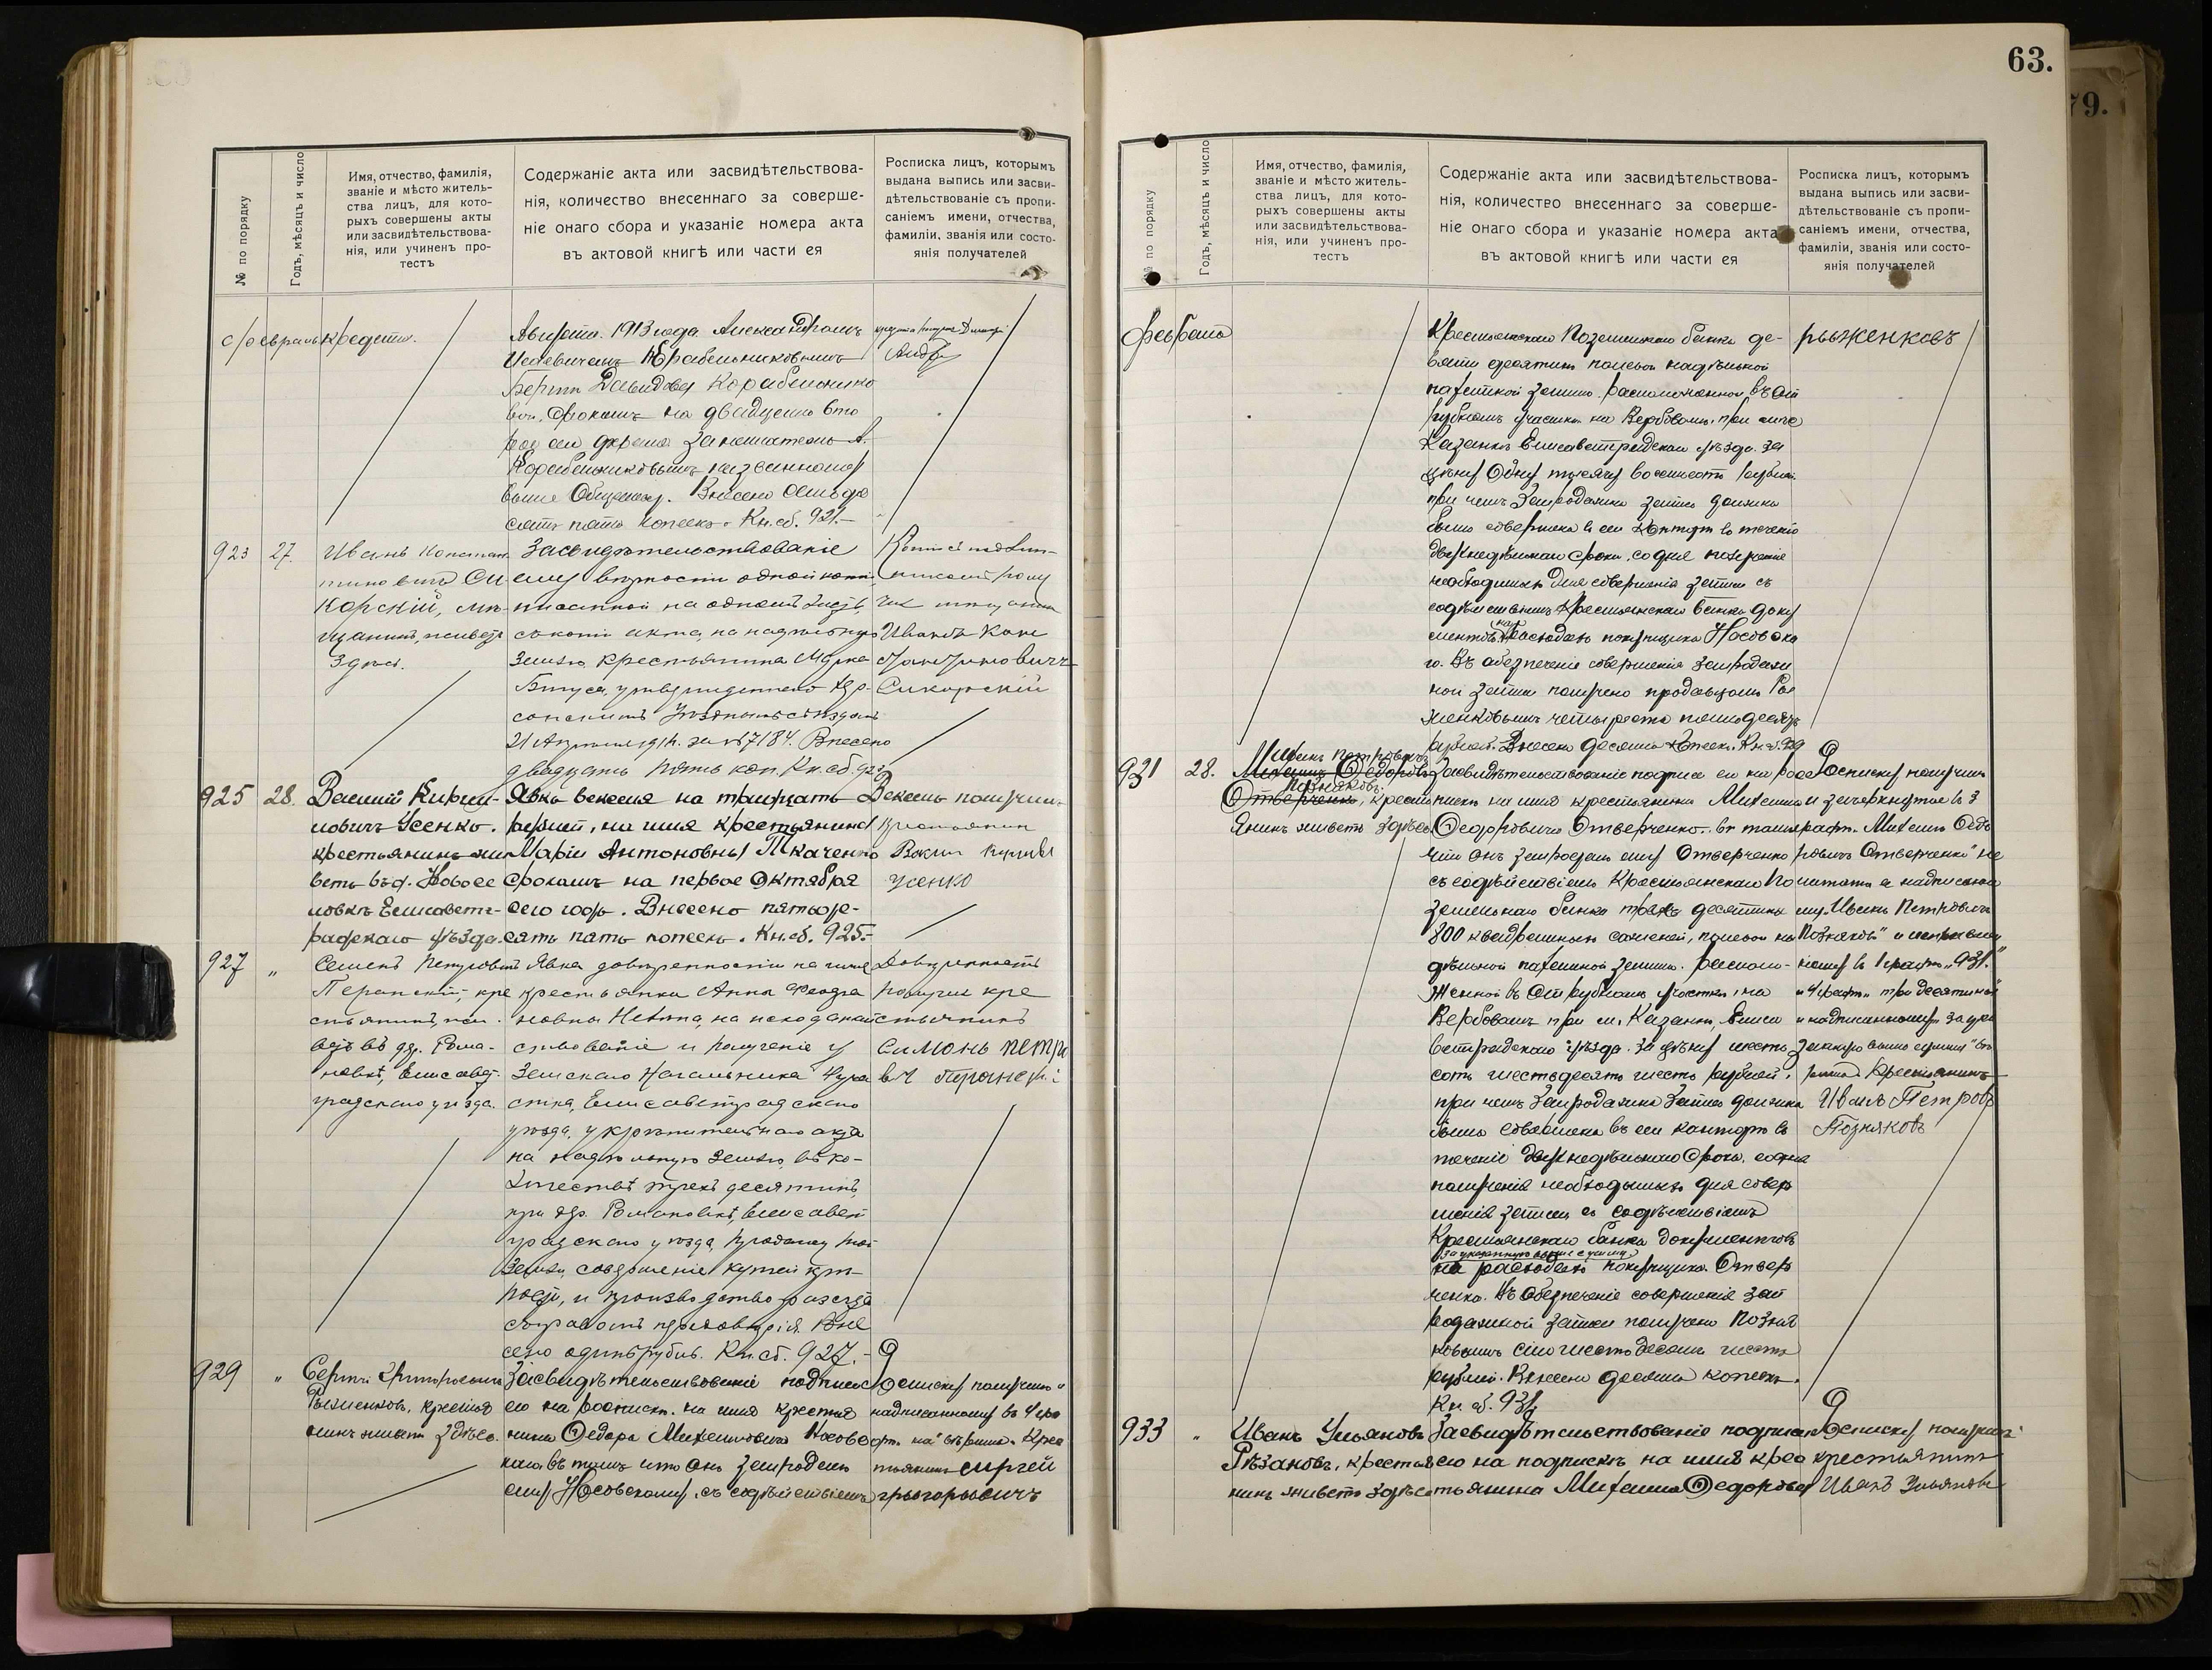 63.
79.
№ по порядку
Годъ, мѣсяцъ и число
Имя, отчество, фамилія,
званіе и мѣсто житель-
ства лицъ, для кото-
рыхъ совершены акты
или засвидѣтельствова-
нія, или учиненъ про-
тестъ
Содержаніе акта или засвидѣтельствова-
нія, количество внесеннаго за соверше-
ніе онаго сбора и указаніе номера акта
въ актовой книгѣ или части ея
Росписка лицъ, которымъ
выдана выпись или засви-
дѣтельствованіе съ пропи-
саніемъ имени, отчества,
фамиліи, званія или состо-
янія получателей
февраль
кредита.
Августа 1913 года Александромъ
Исаевичемъ Корабельниковымъ
Берти Давидовнѣ Корабельнико
вой, срокомъ на двадцать вто
Корабельниковымъ названному
выше Обществу. Внесено семьде
сятъ пять копеекъ. Кн. сб. 921.-
923
27.
Иванъ Констан
тиновичъ Си
корскій, мѣ
щанинъ, живетъ
здѣсь.
Засвидѣтельствованіе
ему вѣрности одной копіи
писанной на одномъ листѣ
съ копіи акта, на надѣльную
землю крестьянина Марка
Бтуса, утвержденнаго Хер-
сонскимъ Уѣзднымъ съѣздомъ
за №7184. Внесено
двадцать пять коп. Кн. сб. 923
Копію съ подлин-
Иванъ Кон
стантиновичъ
Сикорскій
925
28.
Василій Кирил-
ловичъ Усенко.
крестьянинъ жи
ветъ въ д. Новосе
ловкѣ Елисаветг-
радскаго уѣзда.
Явка векселя на тридцать
рублей, на имя крестьянина
Маріи Антоновны Ткаченко
Срокомъ на первое Октября
сего года. Внесено пятьде-
сятъ пять копеекъ. Кн. сб. 925.-
Вексель получилъ
крестьянинъ
Усенко
927
"
Семенъ Петровичъ
Перанскій, кре
стьянинъ, жи-
ветъ въ др. Рома-
новкѣ, Елисавет-
градскаго уѣзда.
Явка довѣренности на имя
крестьянки Анны Феодо
ровны Нетина, на исходатай
ствованіе и полученіе у
Земскаго Начальника 4 уча
стка, Елисаветградскаго
уѣзда, укрѣпительнаго акта
на надѣльную землю, въ ко-
личествѣ трехъ десятинъ,
при др. Романовкѣ, Елисавет
градскаго уѣзда, продажу той
земли, совершеніе купчей крѣ-
пости, и производство
съ правомъ передовѣрія. Вне
сено одинъ рубль. Кн. сб. 927.-
Довѣренность
получилъ кре
стьянинъ
Симонъ Петро
вич Перанскі
929
"
Сергѣй Григорьевичъ
Рыженковъ, крестья
нинъ живетъ здѣсь.
Засвидѣтельствованіе подписи
его на роспискѣ на имя крестья
нина Ѳедора Михайловича Носовс
каго въ томъ что онъ запродалъ
ему Носовскому, съ содѣйствіемъ
Росписку получилъ и
надписанному въ 4 гра
фѣ "на" вѣрить. Крес
тьянинъ Сиргей
Григорьовичъ
№ по порядку
Годъ, мѣсяцъ и число
Имя, отчество, фамилія,
званіе и мѣсто житель-
ства лицъ, для кото-
рыхъ совершены акты
или засвидѣтельствова-
нія, или учиненъ про-
тестъ
Содержаніе акта или засвидѣтельствова-
нія, количество внесеннаго за соверше-
ніе онаго сбора и указаніе номера акта
въ актовой книгѣ или части ея
Росписка лицъ, которымъ
выдана выпись или засви-
дѣтельствованіе съ пропи-
саніемъ имени, отчества,
фамиліи, званія или состо-
янія получателей
Крестьянскаго Поземельнаго банка де-
вять десятинъ полевой надѣльной
пахатной земли, расположенной въ от
рубномъ участкѣ на Вербовомъ, при мѣст
Казанкѣ Елисаветградскаго уѣзда за
цѣну Одну тысячу восемьсотъ рублей.
при чемъ Запродажная запись должна
быть совершена въ сей конторѣ въ теченіе
двухнедѣльнаго срока, со дня полученія
необходимыхъ для совершенія записи съ
содѣйствіемъ Крестьянскаго банка доку
ментовъ, на расходахъ покупщика Носовска
го. Въ обезпеченіе совершенія запродаж
ной записи получено продавцомъ Ры
женковымъ четыреста пятьдесятъ
рублей. Внесено десять копеекъ. Кн. сб. 929
рыженковъ
931
28.
Иванъ Петровичъ
Позняковъ
Отверченко, крестья
янинъ живетъ здѣсь.
Засвидѣтельствованіе подписи его на рос
пискѣ на имя крестьянина Михаила
Ѳеодоровича Отверченко въ томъ
что онъ запродалъ ему Отверченко
съ содѣйствіемъ Крестьянскаго По
земельнаго банка трехъ десятинъ
800 квадратныхъ саженей, полевой на
дѣльной пахатной земли, располо-
женной въ Отрубномъ участкѣ, на
Вербовомъ при м. Казанкѣ, Елиса
ветградскаго уѣзда. За цѣну шесть
сотъ шестьдесятъ шесть рублей,
при чемъ Запродажная запись должна
быть совершена въ сей конторѣ въ
теченіе двухнедѣльнаго срока, со дня
полученія необходимыхъ для совер
шенія записи съ содѣйствіемъ
Крестьянскаго банка документовъ
за указанную выше сумму
на расходахъ покупщика Отвер
ченко. Въ обезпеченіе совершенія зап
родажной записи получено Позня
ковымъ сто шестьдесятъ шесть
рублей. Внесено десять копеекъ.
Кн. сб. 931
Росписку получилъ
и зачеркнутое въ 3
графѣ "Михаилъ Ѳедо
ровичъ Отверченко" не
читать а надписанно
му "Иванъ Петровичъ
Позняковъ" и исправлен
ному въ 1 графѣ "931."
и 4 графѣ "три десятины"
и надписанному "за ука
занную выше сумму" вѣ
рить Крестьянинъ
Иванъ Петровъ
Позняковъ
933
"
Иванъ Ульяновъ
Рѣзановъ, крестья
нинъ живетъ здѣсь
Засвидѣтельствованіе подписи
его на подпискѣ на имя крес
тьянина Михаила Ѳедорова
Росписку получилъ
крестьянинъ
Иванъ Ульяновъ